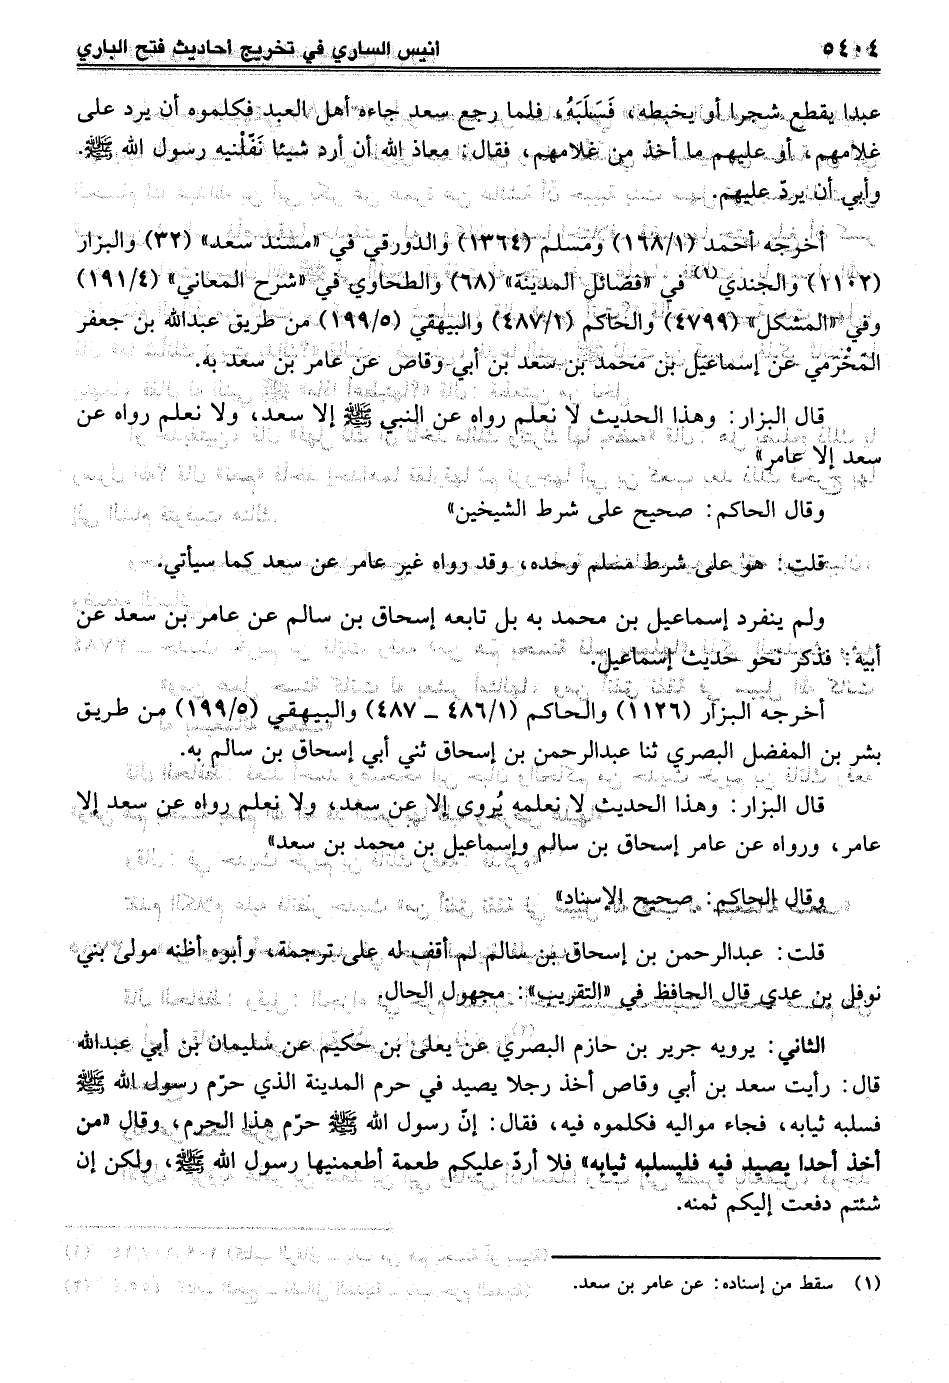 ٥٤٠٤ أنيس الساري في تخريج أحاديث فتح الباري
عبدا يقطع شجرا أو يخبطه، فَسَلَبَهُ، فلما رجع سعد جاءه أهل العبد فكلموه أن يرد على
غلامهم، أو عليهم ما أخذ من غلامهم، فقال: معاذ الله أن أرد شيئا نَفَّلْنيه رسول الله ﷺ.
وأبي أن يردّ عليهم.
أخرجه أحمد (١٦٨/١) ومسلم (١٣٦٤) والدورقي في «مسند سعد» (٣٢) والبزار
(١١٠٢) والجندي(١) في «فضائل المدينة» (٦٨) والطحاوي في «شرح المعاني» (١٩١/٤)
وفي «المشكل» (٤٧٩٩) والحاكم (٤٨٧/١) والبيهقي (١٩٩/٥) من طريق عبدالله بن جعفر
المَخْرَمي عن إسماعيل بن محمد بن سعد بن أبي وقاص عن عامر بن سعد به.
قال البزار: وهذا الحديث لا نعلم رواه عن النبي ﷺ إلا سعد، ولا نعلم رواه عن
سعد إلا عامر»
وقال الحاكم: صحيح على شرط الشيخين»
قلت: هو على شرط مسلم وحده، وقد رواه غير عامر عن سعد كما سيأتي.
ولم ينفرد إسماعيل بن محمد به بل تابعه إسحاق بن سالم عن عامر بن سعد عن
أبيه: فذكر نحو حديث إسماعيل.
أخرجه البزار (١١٢٦) والحاكم (٤٨٦/١ ـ ٤٨٧) والبيهقي (١٩٩/٥) من طريق
بشر بن المفضل البصري ثنا عبدالرحمن بن إسحاق ثني أبي إسحاق بن سالم به.
قال البزار: وهذا الحديث لا نعلمه يُروى إلا عن سعد، ولا نعلم رواه عن سعد إلا
عامر، ورواه عن عامر إسحاق بن سالم وإسماعيل بن محمد بن سعد»
وقال الحاكم: صحيح الإسناد»
قلت: عبدالرحمن بن إسحاق بن سالم لم أقف له على ترجمة، وأبوه أظنه مولى بني
نوفل بن عدي قال الحافظ في «التقريب»: مجهول الحال.
الثاني: يرويه جرير بن حازم البصري عن يعلى بن حكيم عن سليمان بن أبي عبدالله
قال: رأيت سعد بن أبي وقاص أخذ رجلا يصيد في حرم المدينة الذي حرّم رسول الله ﷺ
فسلبه ثيابه، فجاء مواليه فكلموه فيه، فقال: إنّ رسول الله ﷺ حرّم هذا الحرم، وقال «من
أخذ أحدا يصيد فيه فليسلبه ثيابه» فلا أردّ عليكم طعمة أطعمنيها رسول الله ﷺ، ولكن إن
شئتم دفعت إليكم ثمنه.
(١) سقط من إسناده: عن عامر بن سعد.